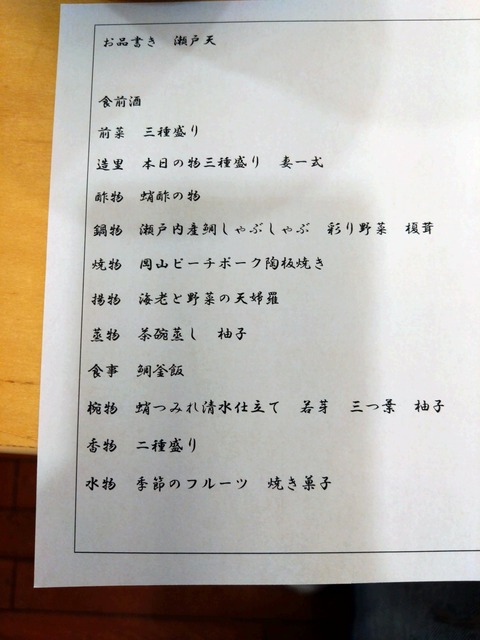 お品書き　瀬戸天
食前酒
前菜　三種盛り
造里　本日の物三種盛り　妻一式
酢物　蛸酢の物
鍋物　瀬戸内産鯛しゃぶしゃぶ　彩り野菜　榎茸
焼物　岡山ピーチポーク陶板焼き
揚物　海老と野菜の天婦羅
蒸物　茶碗蒸し　柚子
食事　鯛釜飯
椀物　蛸つみれ清水仕立て　若芽　三つ葉　柚子
香物　二種盛り
水物　季節のフルーツ　焼き菓子